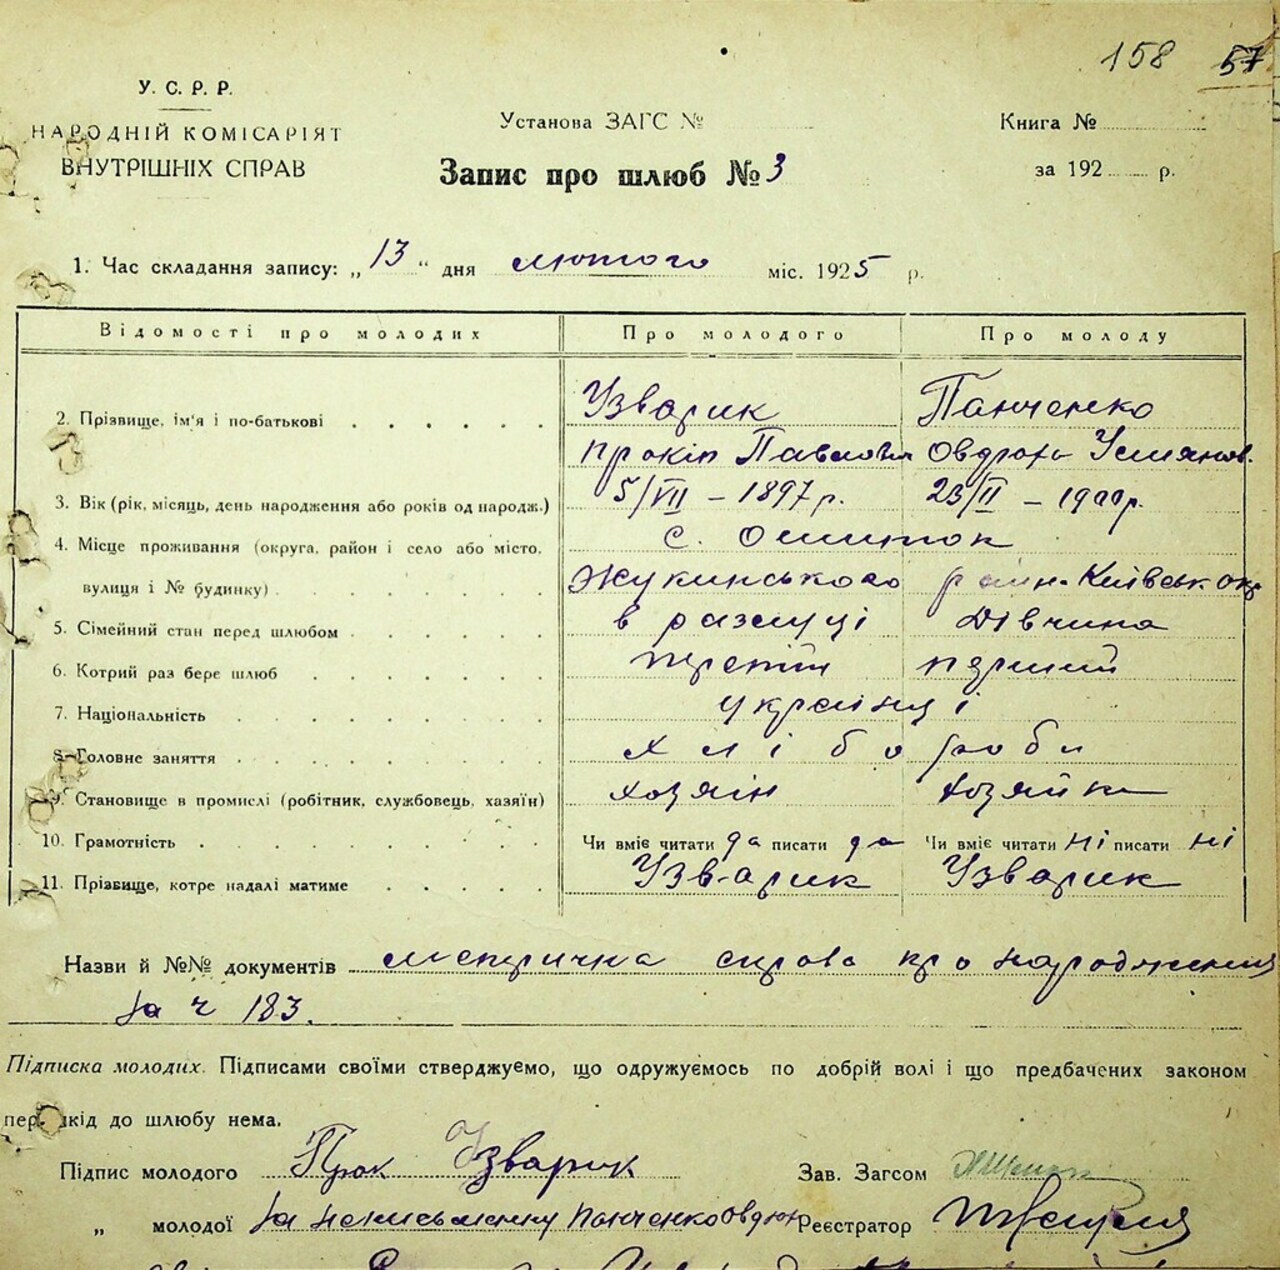 158 57
У. С. Р. Р.
НАРОДНІЙ КОМІСАРІЯТ
ВНУТРІШНІХ СПРАВ
Установа ЗАГС №
Книга №
Запис про шлюб № 3
за 192 р.
1. Час складання запису: „ 13 “ дня лютого міс. 1925 р.
Відомості про молодих Про молодого Про молоду
2. Прізвище, ім'я і по-батькові Узварик Панченко
Прокіп Павлович Овдоха
3. Вік (рік, місяць, день народження або років од народж.) 5/VII – 1897 р. 23/II – 1900 р.
4. Місце проживання (округа, район і село або місто, с. Ошиток
вулиця і № будинку) Жукинського район. Київськ окр
5. Сімейний стан перед шлюбом в разлуці Дівчина
6. Котрий раз бере шлюб третій перший
7. Національність українці
8. Головне заняття хлібороби
9. Становище в промислі (робітник, службовець, хазяїн) хозяін хозяйка
10. Грамотність Чи вміє читати да писати да Чи вміє читати ні писати ні
11. Прізвище, котре надалі матиме Узварик Узварик
Назви й №№ документів метрична справа про народження
за ч 183.
Підписка молодих. Підписами своїми стверджуємо, що одружуємось по добрій волі і що предбачених законом
перешкід до шлюбу нема.
Підпис молодого Прок Узварик Зав. Загсом
„ молодої за неписьменну Панченко Овдох Реєстратор